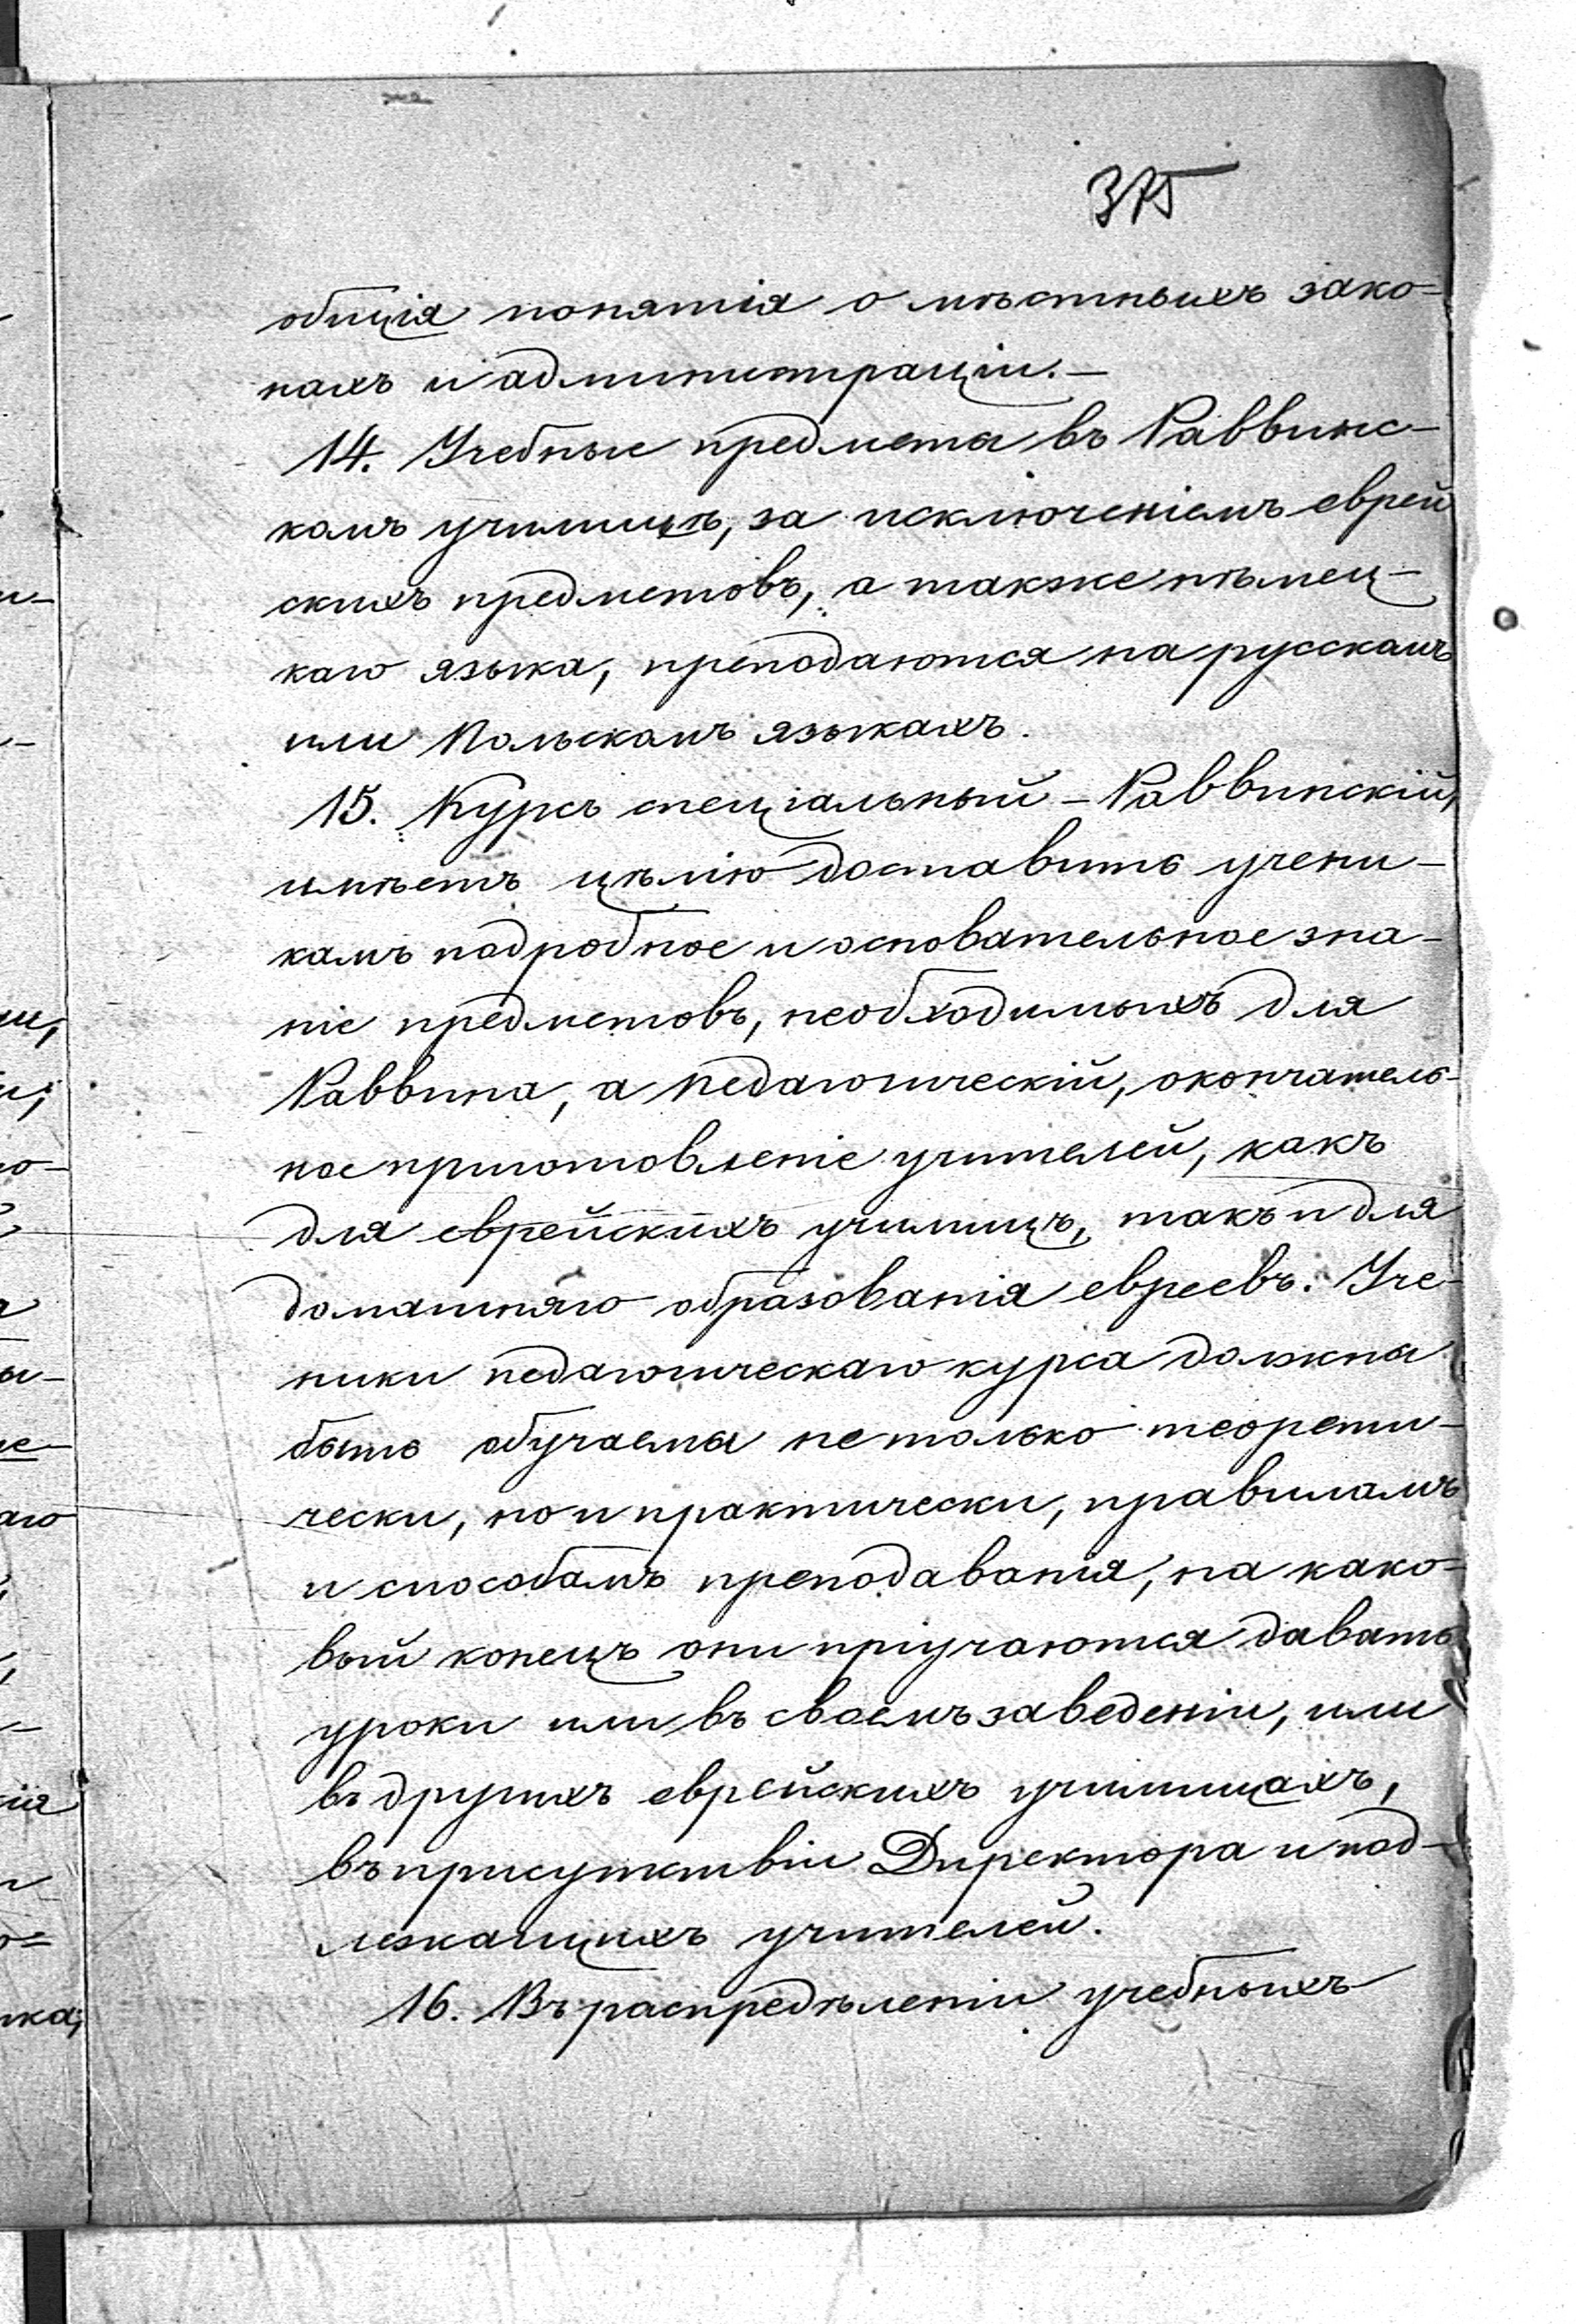 375
общія понятія о мѣстныхъ зако-
нахъ и администраціи.—
14. Учебные предметы въ Раввинс-
комъ училищѣ, за исключеніемъ еврей
скихъ предметовъ, а также нѣмец-
каго языка, преподаются на русскомъ
или Польскомъ языкахъ.
15. Курсъ спеціальный – Раввинскій,
имѣетъ цѣлію доставить учени-
камъ подробное и основательное зна-
ніе предметовъ, необходимыхъ для
Раввина, а педагогическій, окончатель-
ное приготовленіе учителей, какъ
для еврейскихъ училищъ, такъ и для
домашняго образованія евреевъ. Уче-
ники педагогическаго курса должны
быть обучаемы не только теорети-
чески, но и практически, правиламъ
и способамъ преподаванія, на како-
вый конецъ они пріучаются давать
уроки или въ своемъ заведеніи, или
въ другихъ еврейскихъ училищахъ,
въ присутствіи Директора и под-
лежащихъ учителей.
16. Въ распредѣленіи учебныхъ